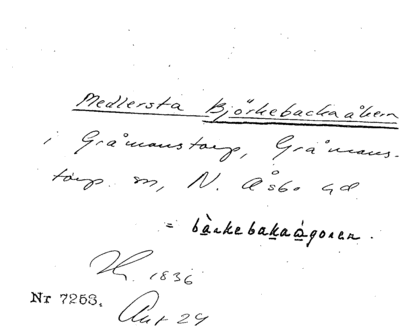 Medlersta Björkebackaåkern
i Gråmanstorp, Gråmans-
torp sn, N. Åsbo hd
= bàrkebakaågoren.
1836
Nr 7253.
Ant 24